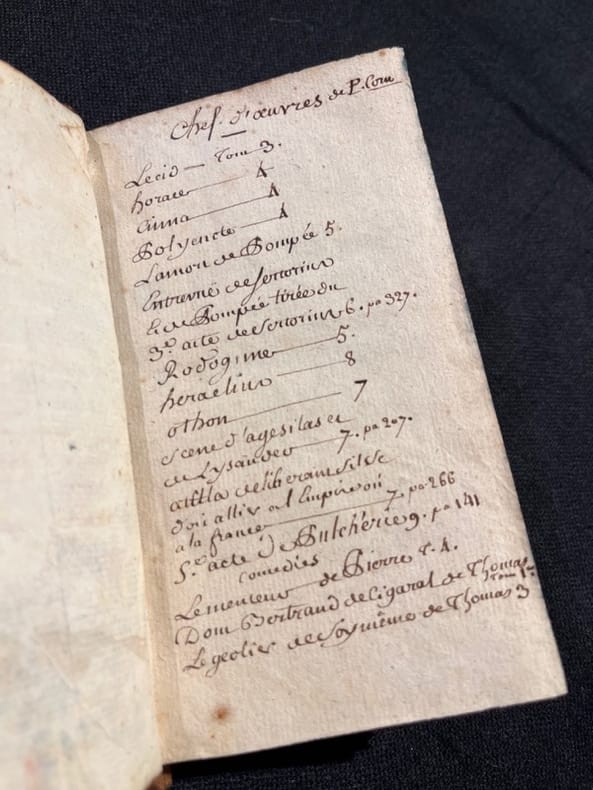 Chef. d'œuvres de P. Corn
Lecid — Tom 3.
horace 4
Cinna 4
Polyencte 4
Lamort de Pompée 5.
Entrevuë de sertorius
& de Pompée tirée du
3.e acte de Sertorius 6. pa 327.
Rodogune 5.
heraclius 8
othon 7
scene d'agesilas et
de Lysander 7. pa 207.
attila deliberant s'il se
doit allier a l'Empire ou
a la france 7. pa 266
5.e acte de Pulchérie 9. pa 141
comedies
Le menteur de Pierre T. 4.
Dom Bertrand de Cigaral de Thomas
Tom 1.er
Le geolier de soy même de Thomas 3